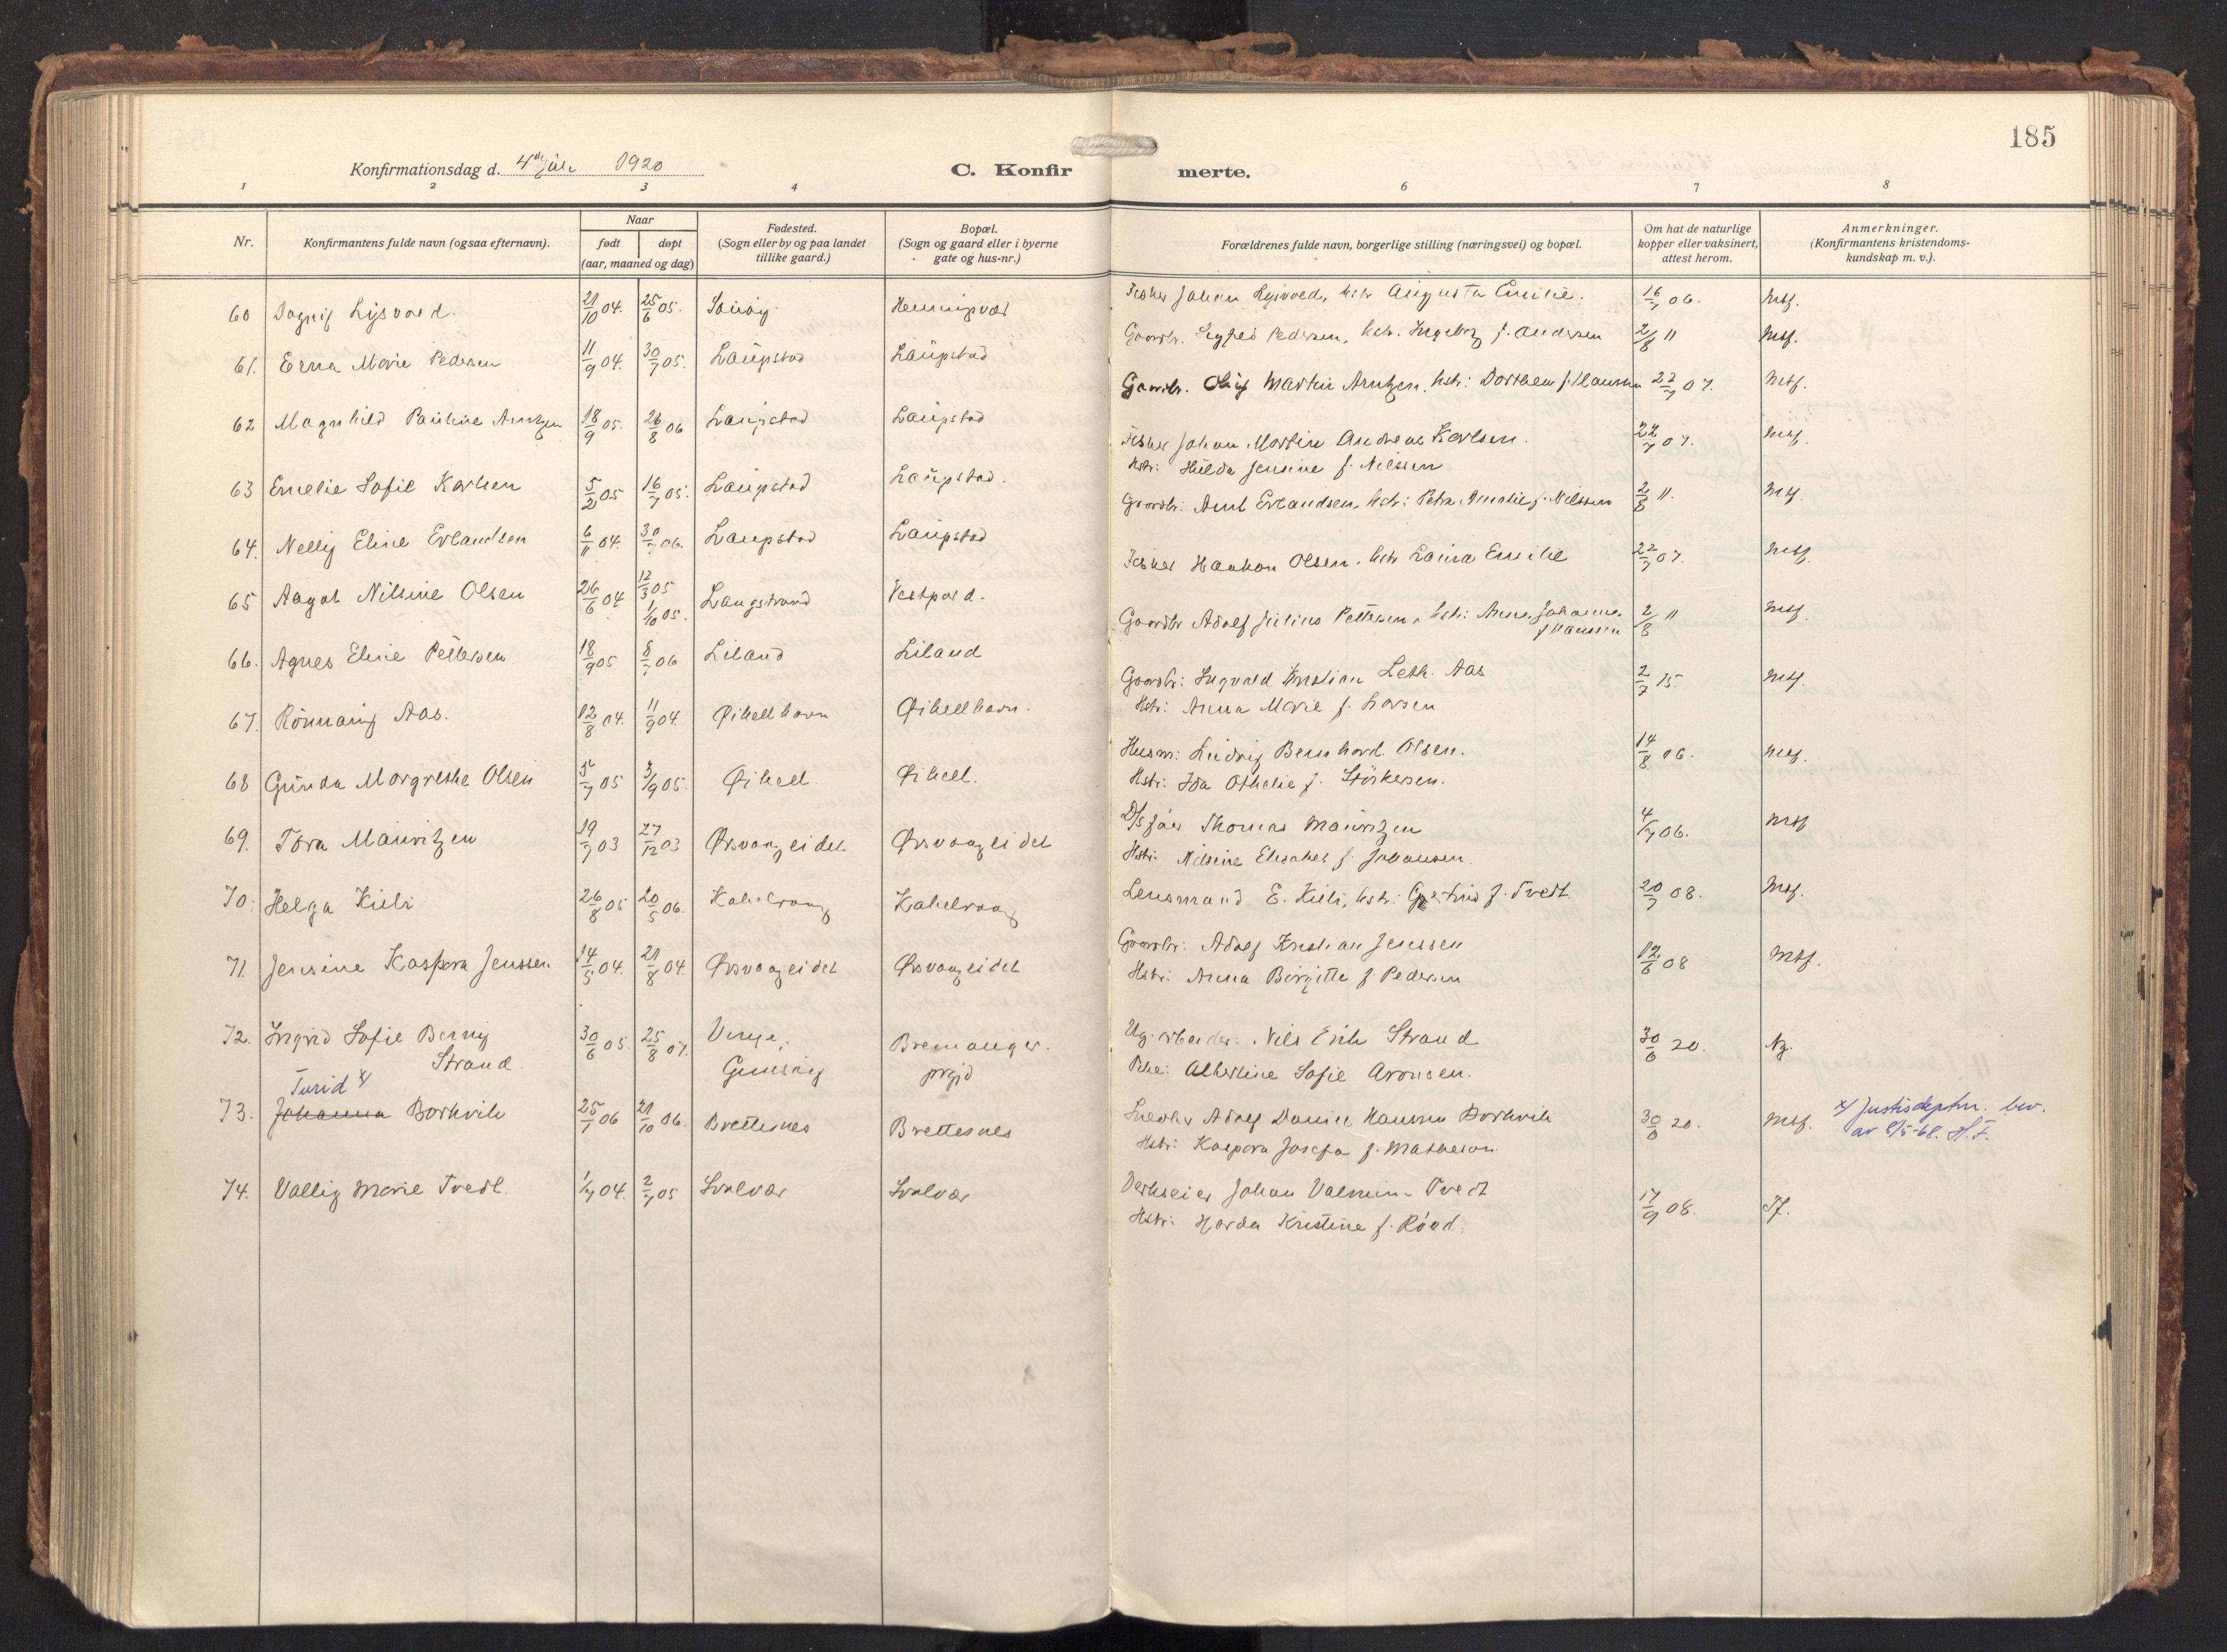 185
Konfirmationsdag d. 4de juli 1920
C. Konfirmerte.
1 2 3 4 5 6 7 8
Nr.
Konfirmantens fulde navn (ogsaa efternavn).
Naar
født døpt
(aar, maaned og dag)
Fødested.
(Sogn eller by og paa landet
tillike gaard.)
Bopæl.
(Sogn og gaard eller i byerne
gate og hus-nr.)
Forældrenes fulde navn, borgerlige stilling (næringsvei) og bopæl.
Om hat de naturlige
kopper eller vaksinert,
attest herom.
Anmerkninger.
(Konfirmantens kristendoms-
kundskap m. v.).
60 Dagny Lysvold. 21/10 04. 25/6 05. Henningvær Fisker Johan Lysvold, hstr Augusta Emilie. 16/7 06. Mtf.
61. Erna Marie Pedersen 11/9 04. 30/7 05. Laupstad Laupstad Gaardbr. Sigfred Pedersen, hstr. Ingeborg f. Andersen 2/8 11 Mtf.
62 Magnhild Pauline Arntzen 18/9 05. 26/8 06 Laupstad Laupstad Gaardbr. Oluf Martin Arntzen, hstr: Dorthea f. Hansen 22/7 07. Mtf.
63 Emelie Sofie Karlsen 5/2 05 16/7 05. Laupstad Laupstad. Fisker Johan Martin Andreas Karlsen.
Hstr: Hilda Jensine f. Nilssen 22/7 07. Mtf.
64. Nelly Eline Erlandsen 6/11 04. 30/7 06. Laupstad Laupstad Gaardbr: Arnt Erlandsen, hstr: Petra Amalie f. Nilssen 2/8 11. Mtf.
65 Aagot Nilsine Olsen 26/6 04 12/3 05 1/10 05. Langstrand Vestpold. Fisker Haakon Olsen. hstr Laura Emilie 22/7 07. Mtf.
66. Agnes Eline Pettersen 18/9 05 8/7 06 Liland Liland Gaardbr Adolf Julius Pettersen, hstr: Anne Johanna
f Hanssen 2/8 11 Mtf.
67. Rönnaug Aas. 12/8 04. 11/9 04. Øihellhavn Øihellhavn. Gaardbr: Ingvald Kristian Leth. Aas
Hstr: Anna Marie f. Larsen 2/7 15. Mtf.
68 Gunda Margrethe Olsen 5/7 05 3/9 05. Øihell. Øihell. Husm: Ludvig Bernhard Olsen.
Hstr: Ida Othelie f. Störkersen. 14/8 06. Mtf.
69. Tora Mauritzen 19/7 03 27/12 03 Ørsvaageidet Ørsvaageidet Thomas Mauritzen
Hstr: Nilsine Elisabet f. Johansen. 4/7 06. Mtf
70. Helga Kiil 26/8 05 20/5 06. Kabelvaag Kabelvaag Lensmand E. Kiil, hstr: Gjertrud f. Tvedt. 20/7 08. Mtf.
71. Jensine Kaspara Jenssen 14/5 04. 21/8 04. Ørsvaageidet Ørsvaageidet Gaardbr: Adolf Kristian Jenssen
Hstr: Anna Birgitte f Pedersen 12/6 08 Mtf.
72. Ingrid Sofie Berny
Strand. 30/6 05. 25/8 07. Gimsøy Bremanger.
prgjd Ug. arbeider: Nils Erik Strand
Pike: Albertine Sofie Aronsen. 30/6 20. Ng.
Turid x/
73. Johanna Borkvik 25/1 06 21/10 06. Brettesnes Brettesnes Adolf Daniel Hansen Borkvik
Hstr: Kaspara Josefa f. Mathesen 30/6 20. Mtf.
x/ Justisdeptm. bev.
av 8/5-68. H.F.
74. Vally Marie Tvedt. 1/7 04. 2/7 05 Svolvær Svolvær Verkseier Johan Valmin Tvedt
Hstr: Harda Kristine f. Röed. 17/9 08. Tf.